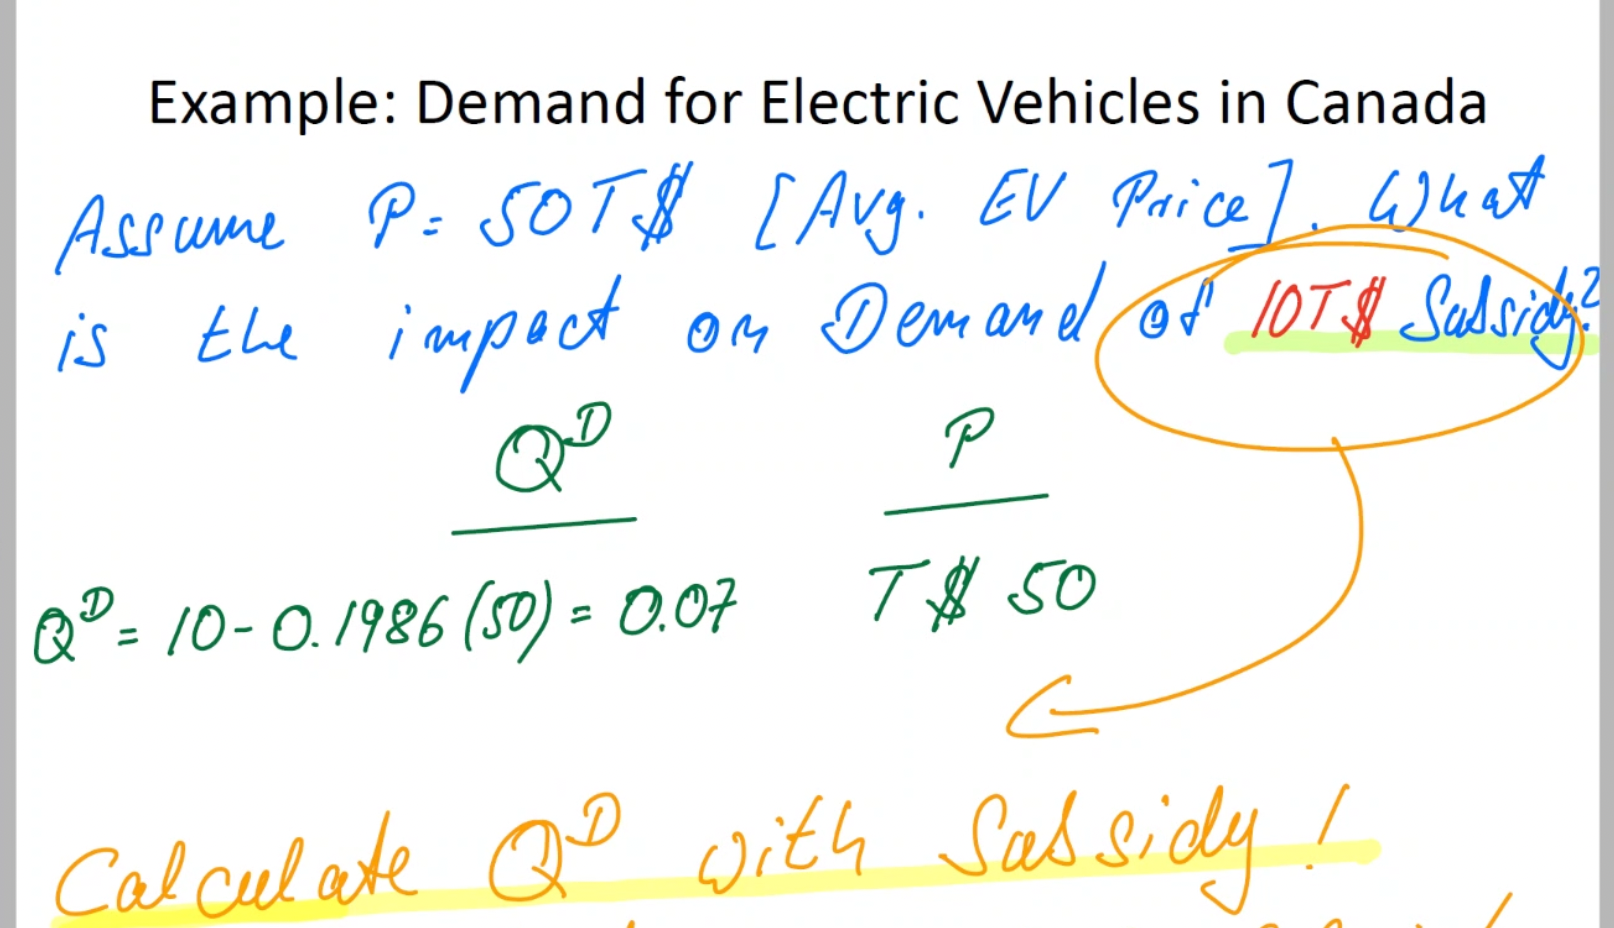 Example: Demand for Electric Vehicles in Canada
Assume P = 50T$ [Avg. EV Price]. What
is the impact on Demand of 10T$ Subsidy?
Q^D P
Q^D = 10 - 0.1986 (50) = 0.07 T$ 50
Calculate Q^D with Subsidy!